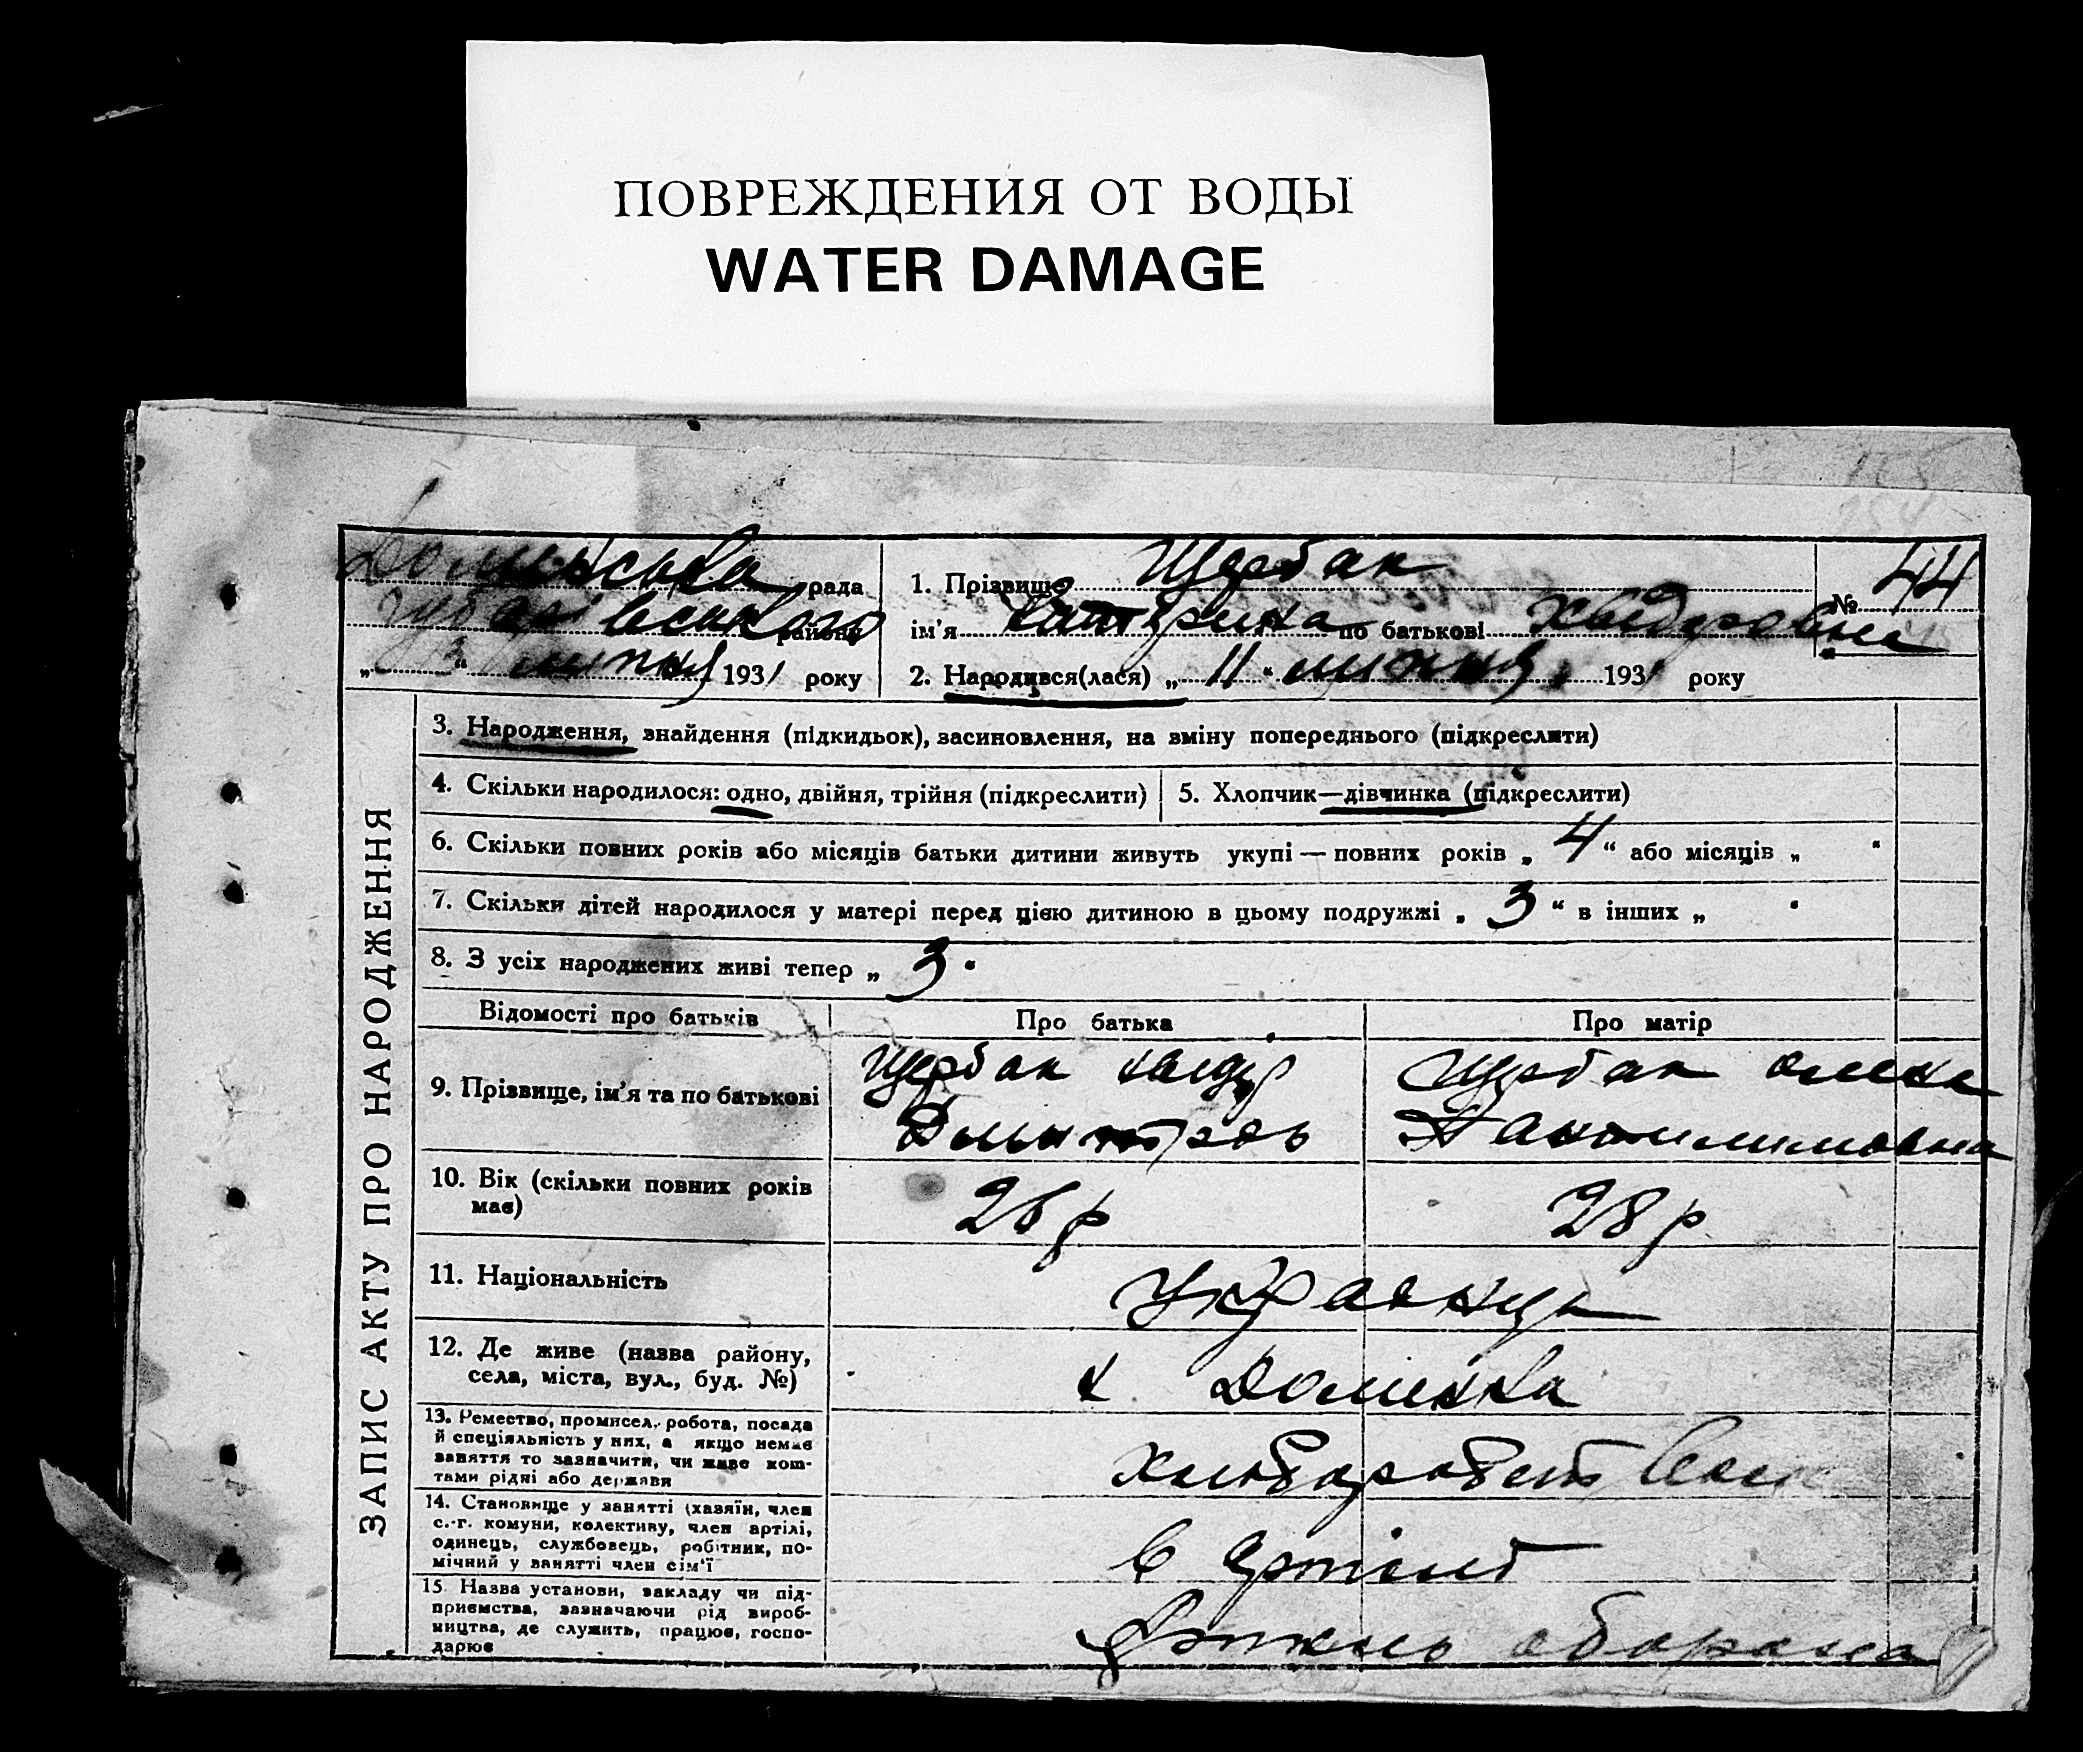 ПОВРЕЖДЕНИЯ ОТ ВОДЫ
WATER DAMAGE
рада
району
липня 1931 року
1. Прізвище Щербак
№ 44
ім'я Катерина по батькові
2. Народився(лася) „ 11 “ липня 1931 року
ЗАПИС АКТУ ПРО НАРОДЖЕННЯ
3. Народження, знайдення (підкидьок), засиновлення, на зміну попереднього (підкреслити)
4. Скільки народилося: одно, двійня, трійня (підкреслити)
5. Хлопчик—дівчинка (підкреслити)
6. Скільки повних років або місяців батьки дитини живуть укупі — повних років „ 4 “ або місяців „ “
7. Скільки дітей народилося у матері перед цією дитиною в цьому подружжі „ 3 “ в інших „ “
8. З усіх народжених живі тепер „ 3 “
Відомості про батьків
Про батька
Про матір
9. Прізвище, ім'я та по батькові
Щербак
Щербак
10. Вік (скільки повних років
має)
26 р
28 р
11. Національність
12. Де живе (назва району,
села, міста, вул., буд. №)
13. Ремество, промисел, робота, посада
й спеціяльність у них, а якщо немає
заняття то зазначити, чи живе кош-
тами рідні або держави
14. Становище у занятті (хазяїн, член
с.-г. комуни, колективу, член артілі,
одинець, службовець, робітник, по-
мічний у занятті член сім'ї
в
15. Назва установи, закладу чи під-
приємства, зазначаючи рід вироб-
ництва, де служить, працює, госпо-
дарює
оборона